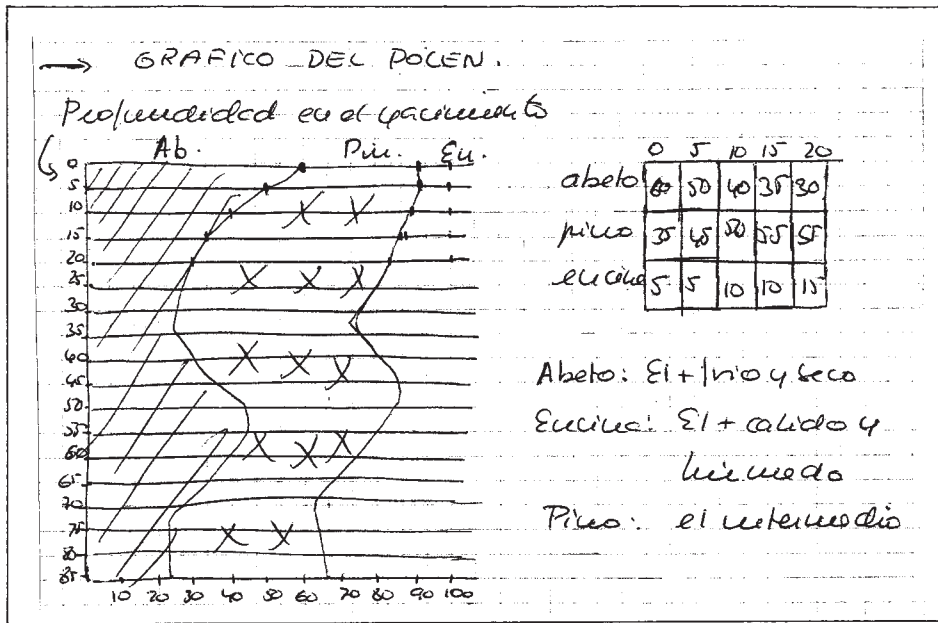 → GRAFICO DEL POLEN.
Profundidad en el yacimiento
Ab. Pin. En.
0
5
10
15
20
25
30
35
40
45
50
55
60
65
70
75
80
85
10 20 30 40 50 60 70 80 90 100
0 5 10 15 20
abeto 60 50 40 35 30
pino 35 45 50 55 55
encina 5 5 10 10 15
Abeto: El + frio y seco
Encina: El + calido y
humedo
Pino: el intermedio